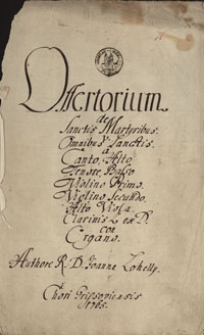 Offertorium
de
Sanctis Martyribus.
Omnibus Sanctis.
a
Canto, Alto
Tenore, Basso
Violino Primo.
Violino Secundo.
Alto Viola
Clarinis 2 ex D.
con
Organo.
Authore R. D. Joanne Lohelly.
Chori
1765.